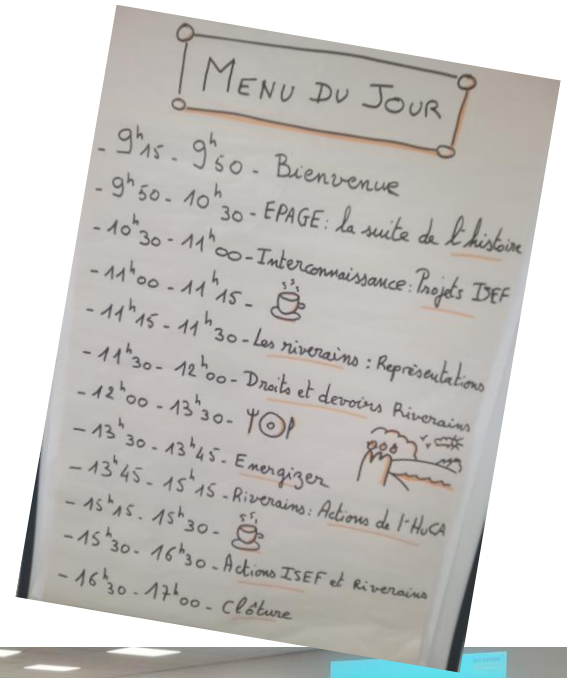 MENU DU JOUR
- 9h15 - 9h50 - Bienvenue
- 9h50 - 10h30 - EPAGE : la suite de l'histoire
- 10h30 - 11h00 - Interconnaissance : Projets ISEF
- 11h00 - 11h15 -
- 11h15 - 11h30 - Les riverains : Représentations
- 11h30 - 12h00 - Droits et devoirs Riverains
- 12h00 - 13h30 -
- 13h30 - 13h45 - Energizer
- 13h45 - 15h15 - Riverains : Actions de l'HuCA
- 15h15 - 15h30 -
- 15h30 - 16h30 - Actions ISEF et Riverains
- 16h30 - 17h00 - Clôture